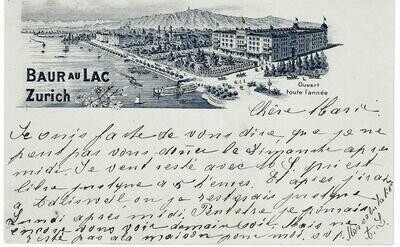 BAUR AU LAC
Zurich
Ouvert
toute l'année
Chère Marie
Je suis fâchée de vous dire que je ne
peut pas vous le Dimanche après
midi. Je reste avec M. S. qui est
libre jusque a 5 heures. Et après j'irai
a Thalwil je restrais jusque
Lundi après midi. Peutetre je pourais
encore vous voir demain soir. Mais ne
reste pas à la maison pour moi.